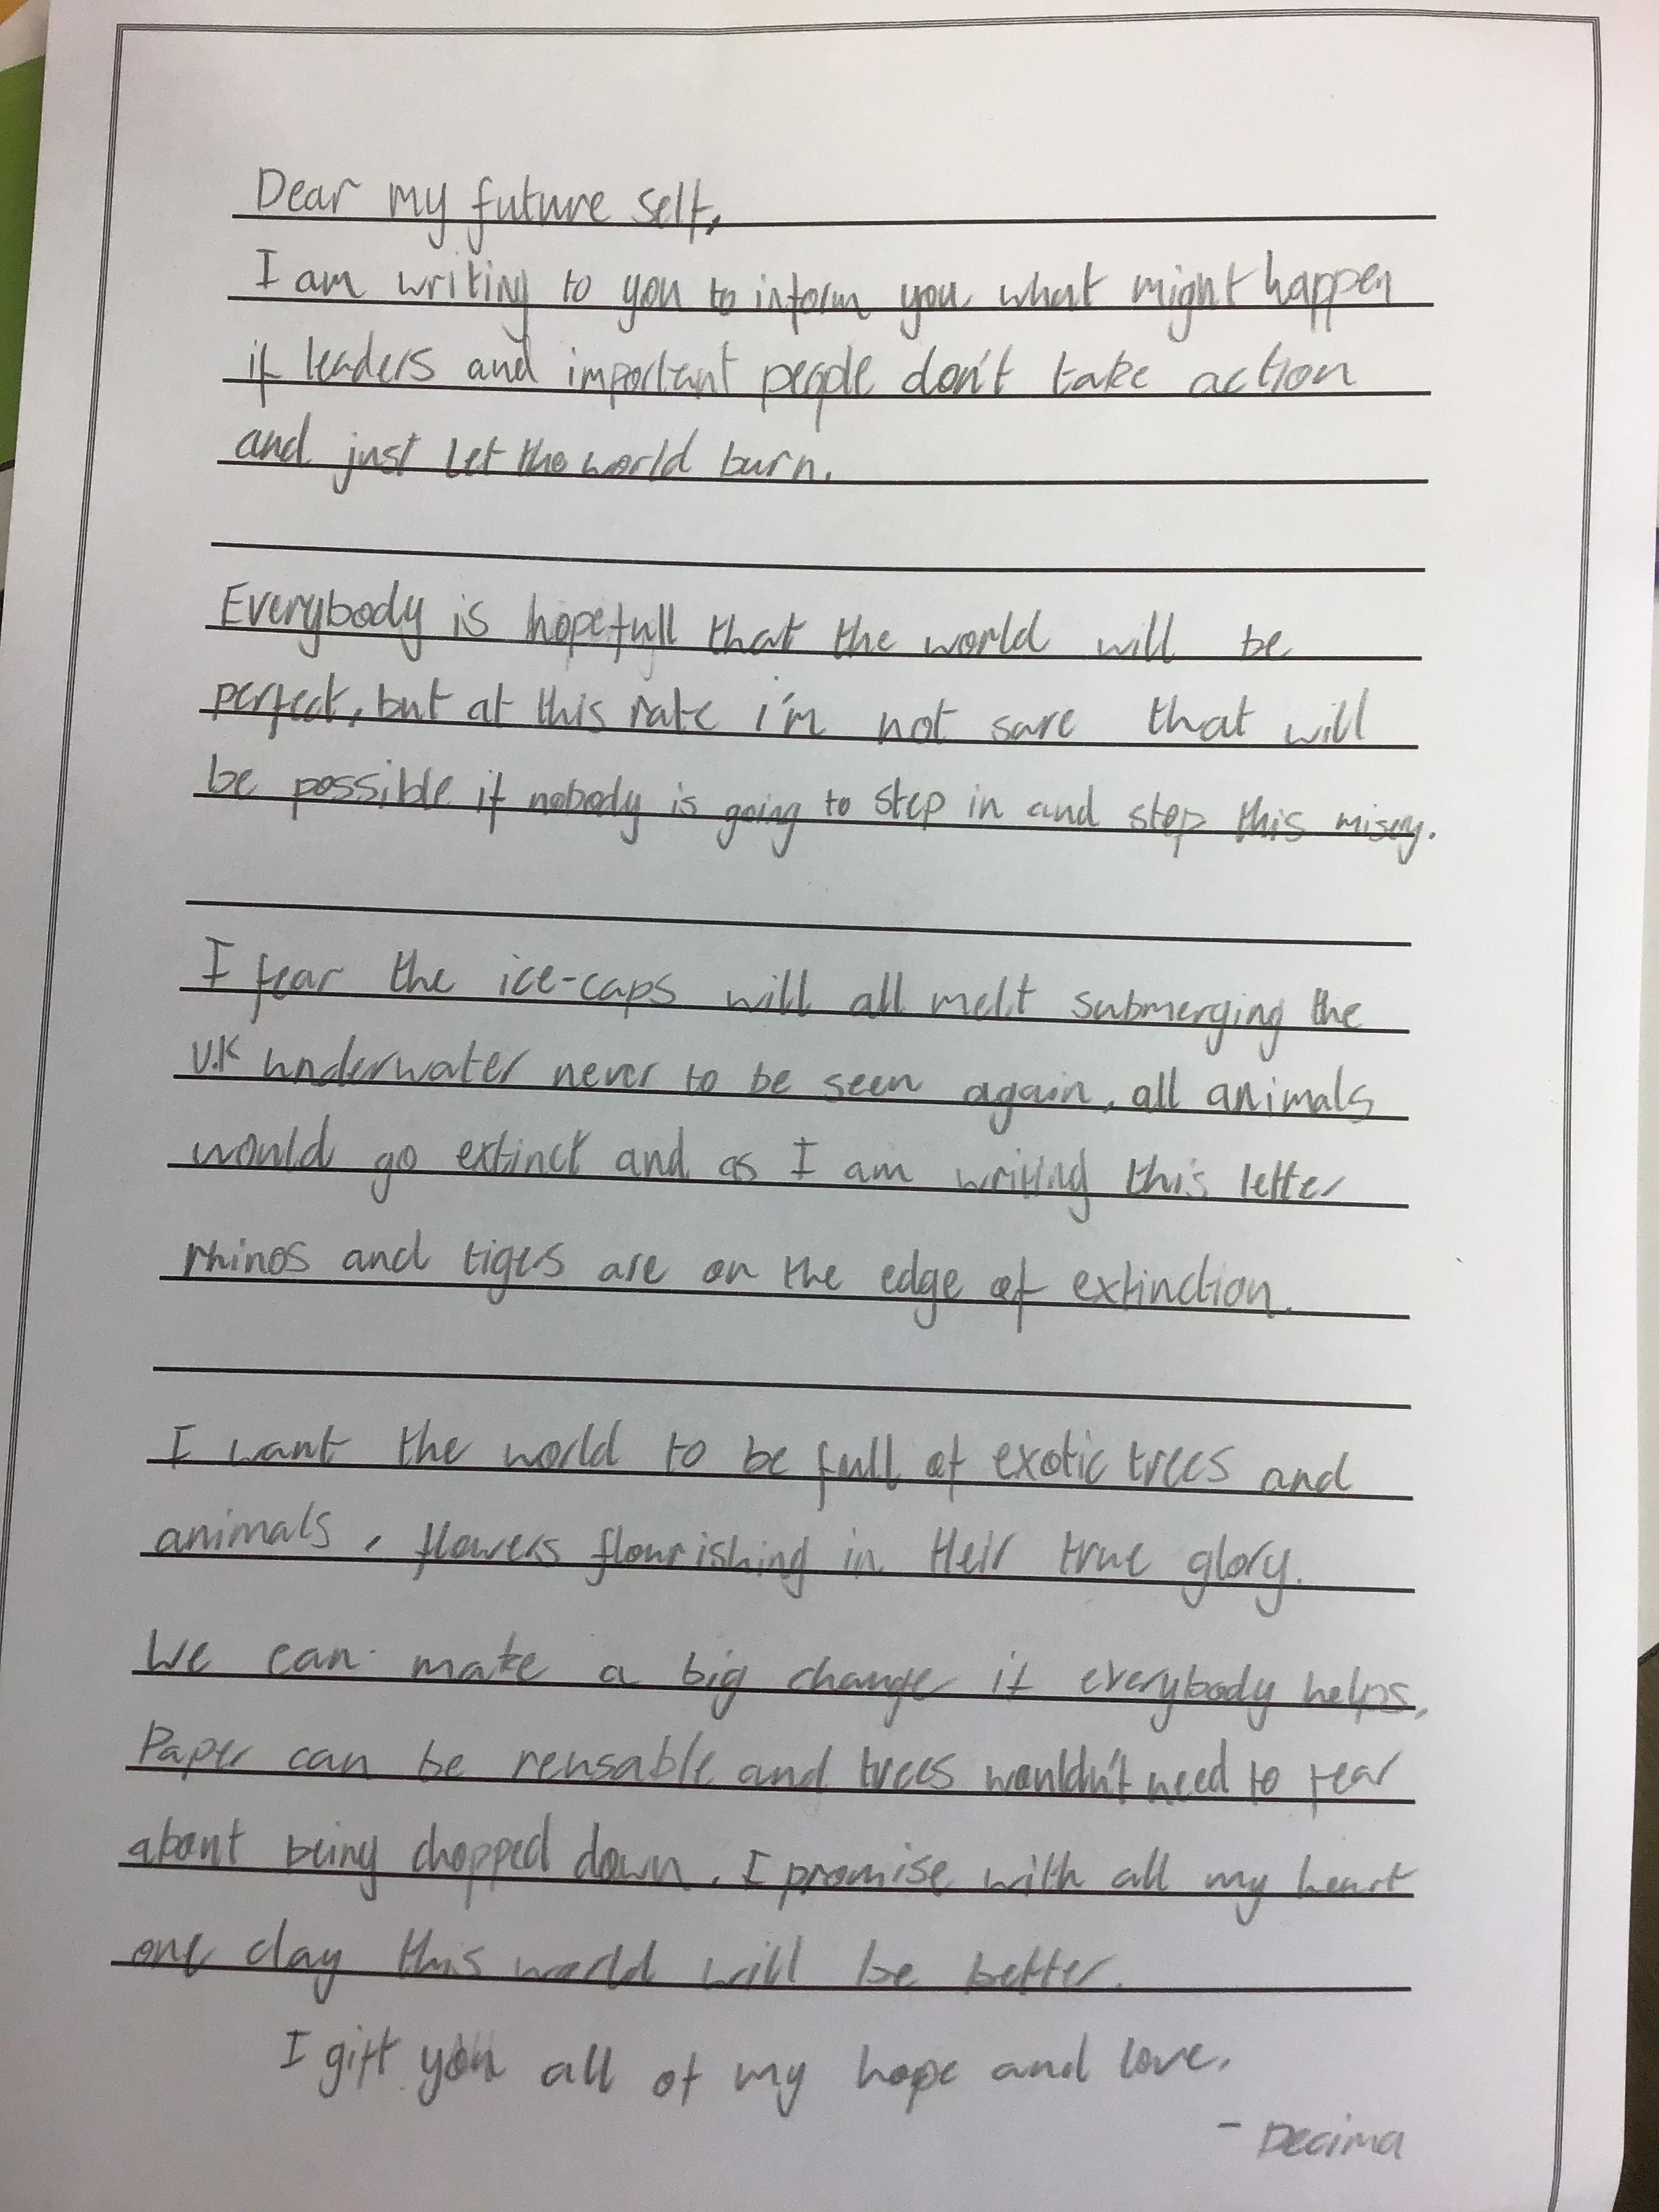 Dear my future self,
I am writing to you to inform you what might happen
if leaders and important people don't take action
and just let the world burn.
Everybody is hopefull that the world will be
perfect, but at this rate i'm not sure that will
be possible if nobody is going to step in and stop this misery.
I fear the ice-caps will all melt submerging the
U.K underwater never to be seen again, all animals
would go extinct and as I am writing this letter
rhinos and tigers are on the edge of extinction.
I want the world to be full of exotic trees and
animals, flowers flourishing in their true glory.
We can make a big change if everybody helps,
Paper can be reusable and trees wouldn't need to fear
about being chopped down. I promise with all my heart
one day this world will be better.
I gift you all of my hope and love.
- Decima